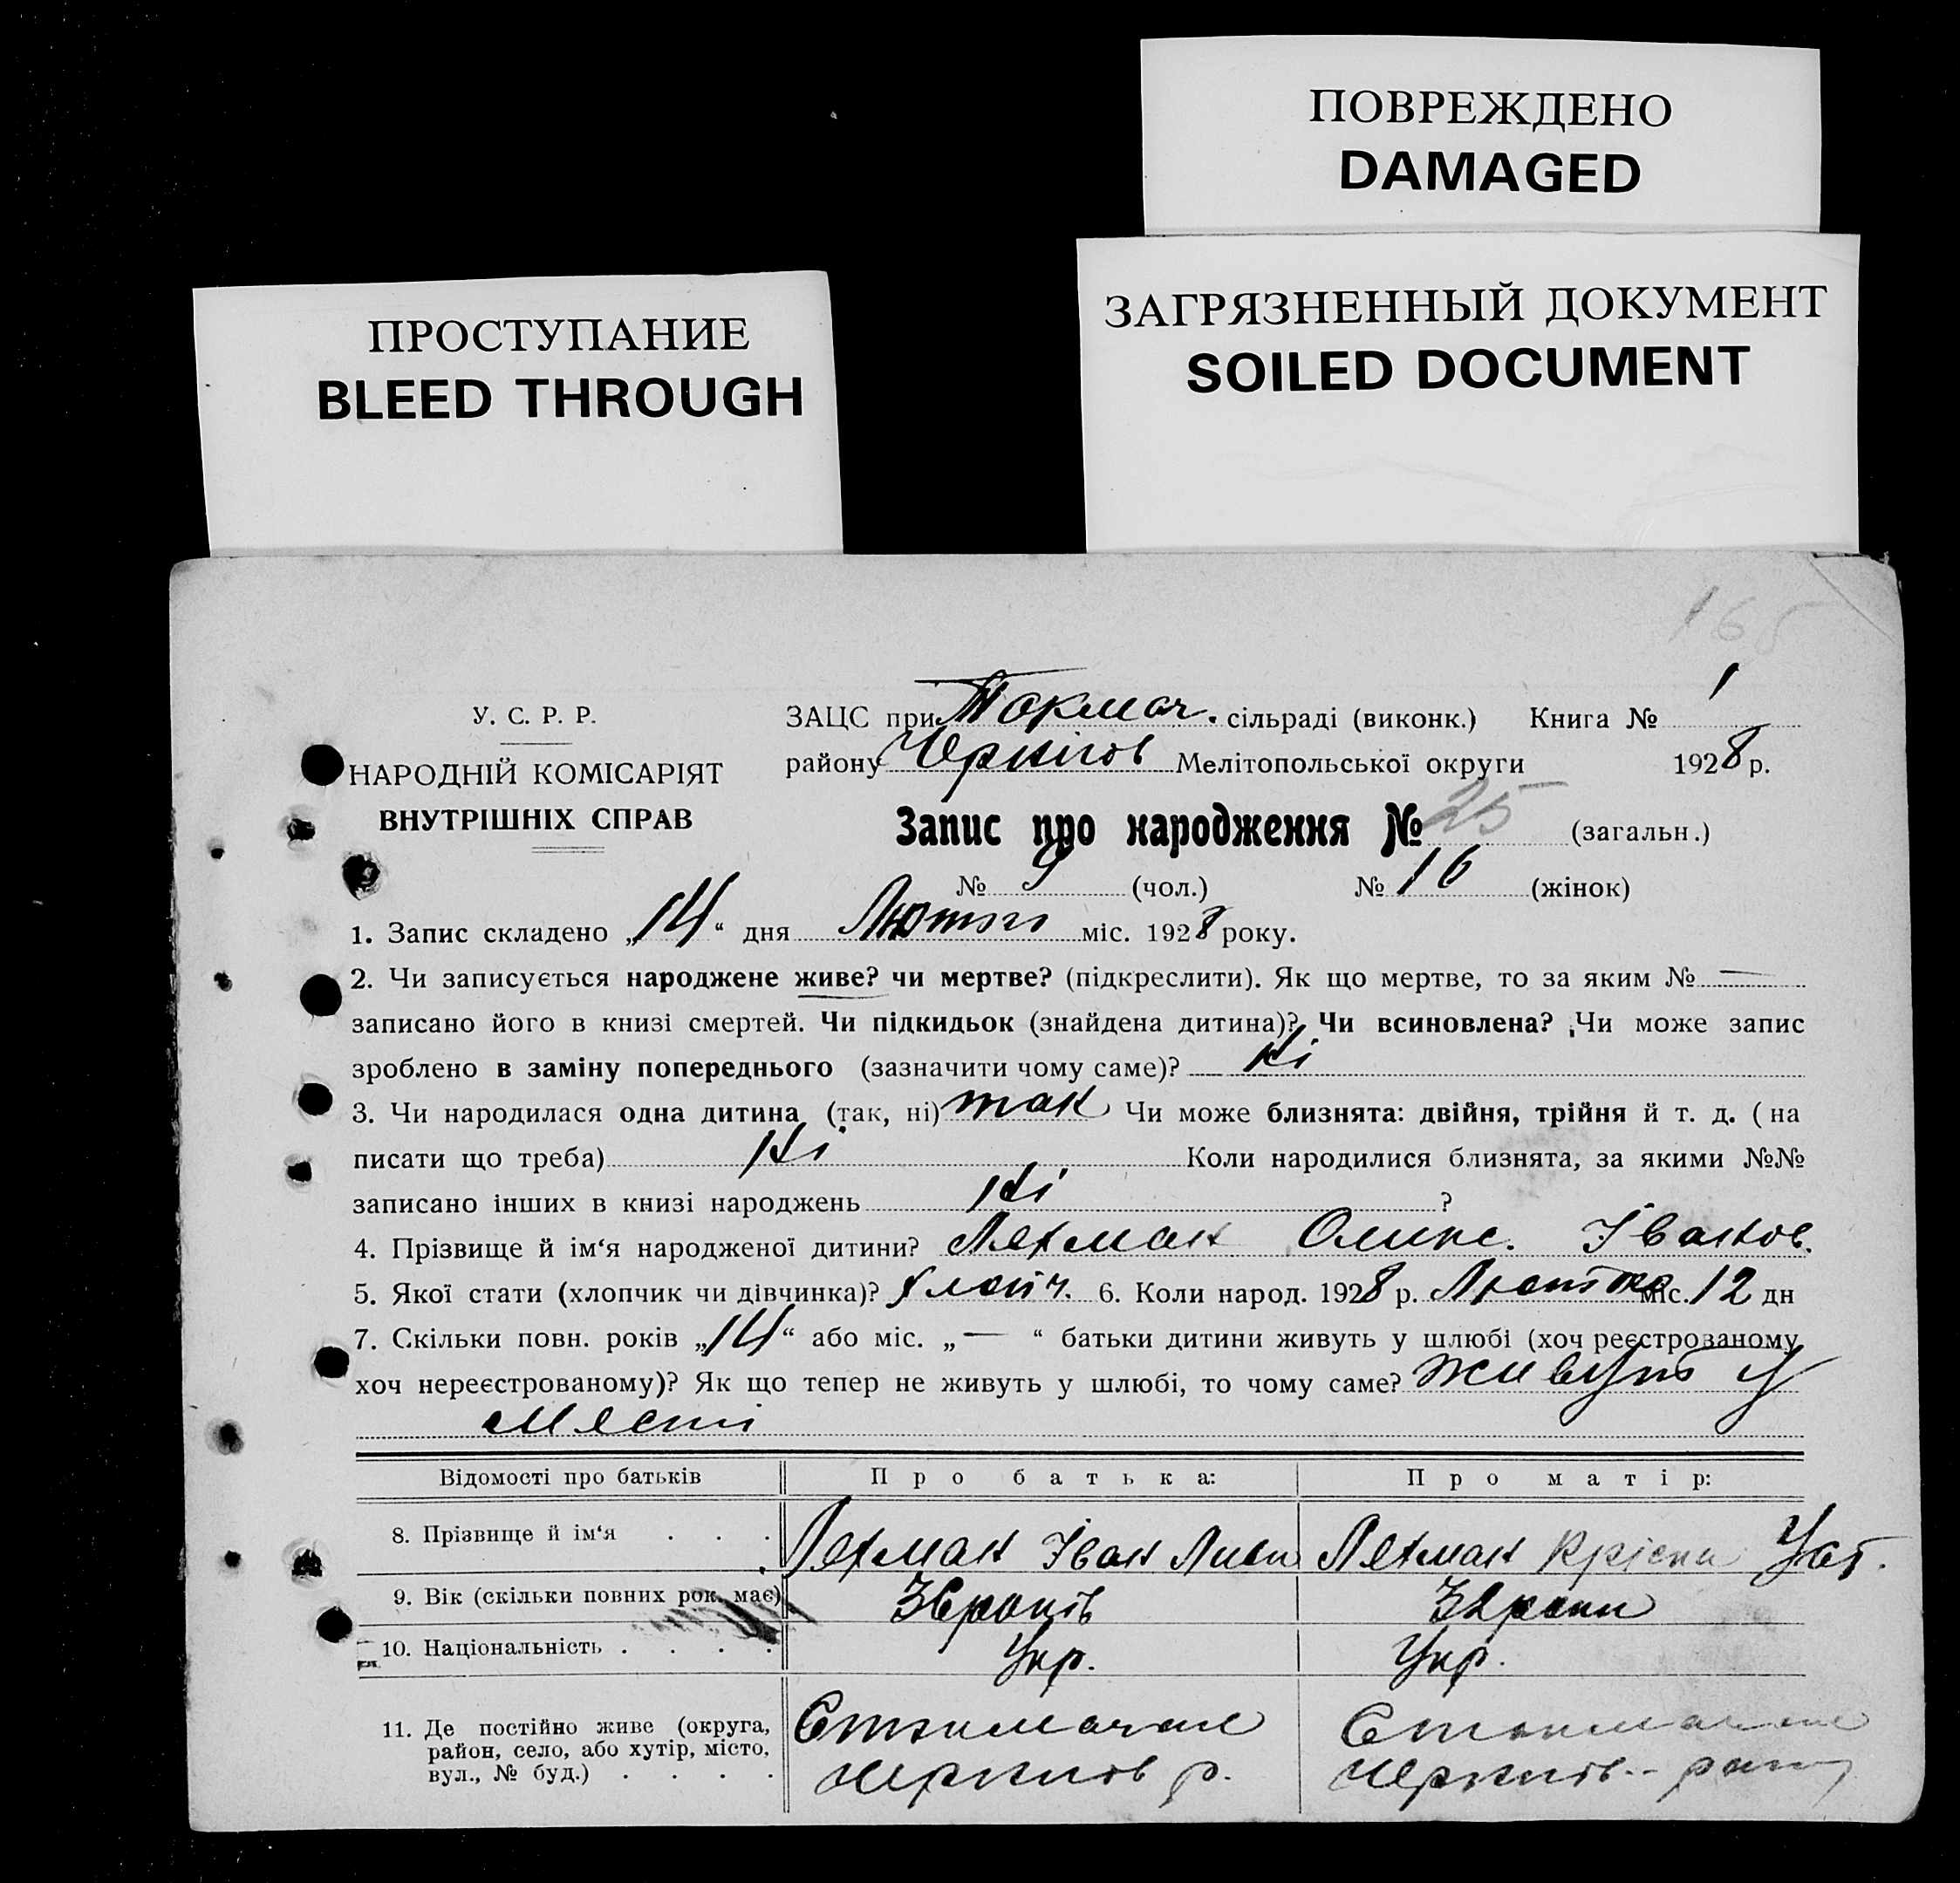 ПОВРЕЖДЕНО
DAMAGED
ЗАГРЯЗНЕННЫЙ ДОКУМЕНТ
SOILED DOCUMENT
ПРОСТУПАНИЕ
BLEED THROUGH
165
У. С. Р. Р.
НАРОДНІЙ КОМІСАРІЯТ
ВНУТРІШНІХ СПРАВ
ЗАЦС при Токмач. сільраді (виконк.) Книга № 1
району Чернігов Мелітопольської округи 1928 р.
Запис про народження № 25 (загальн.)
№ 9 (чол.) № 16 (жінок)
1. Запис складено „14“ дня Лютого міс. 1928 року.
2. Чи записується народжене живе? чи мертве? (підкреслити). Як що мертве, то за яким № —
записано його в книзі смертей. Чи підкидьок (знайдена дитина)? Чи всиновлена? Чи може запис
зроблено в заміну попереднього (зазначити чому саме)? Ні
3. Чи народилася одна дитина (так, ні) так Чи може близнята: двійня, трійня й т. д. ( на
писати що треба) Ні Коли народилися близнята, за якими №№
записано інших в книзі народжень Ні ?
4. Прізвище й ім‘я народженої дитини? Лехман Іванов.
5. Якої стати (хлопчик чи дівчинка)? 6. Коли народ. 1928 р. Лютого міс. 12 дн
7. Скільки повн. років „14“ або міс. „—“ батьки дитини живуть у шлюбі (хоч реєстрованому
хоч нереєстрованому)? Як що тепер не живуть у шлюбі, то чому саме? живуть у
Відомості про батьків
Про батька:
Про матір:
8. Прізвище й ім‘я . . .
Лехман Іван
Лехман
9. Вік (скільки повних рок. має)
36 років
32 роки
10. Національність . . . .
Укр.
Укр.
11. Де постійно живе (округа,
район, село, або хутір, місто,
вул., № буд.) . . . .
Чернігов р.
Чернігов.